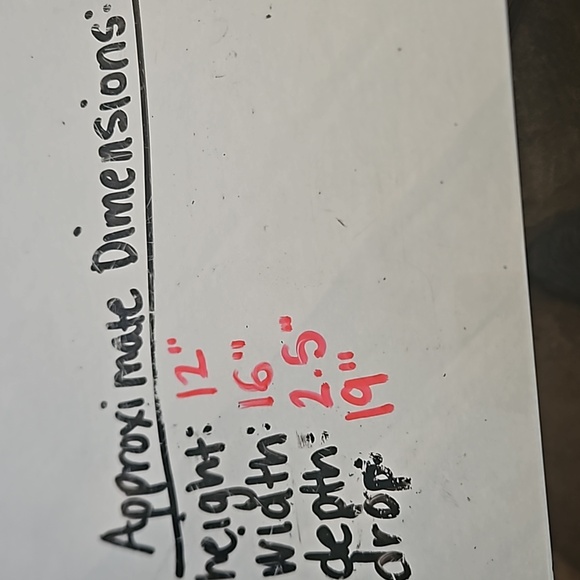 Approximate Dimensions:
height: 12"
width: 16"
depth: 2.5"
drop 19"